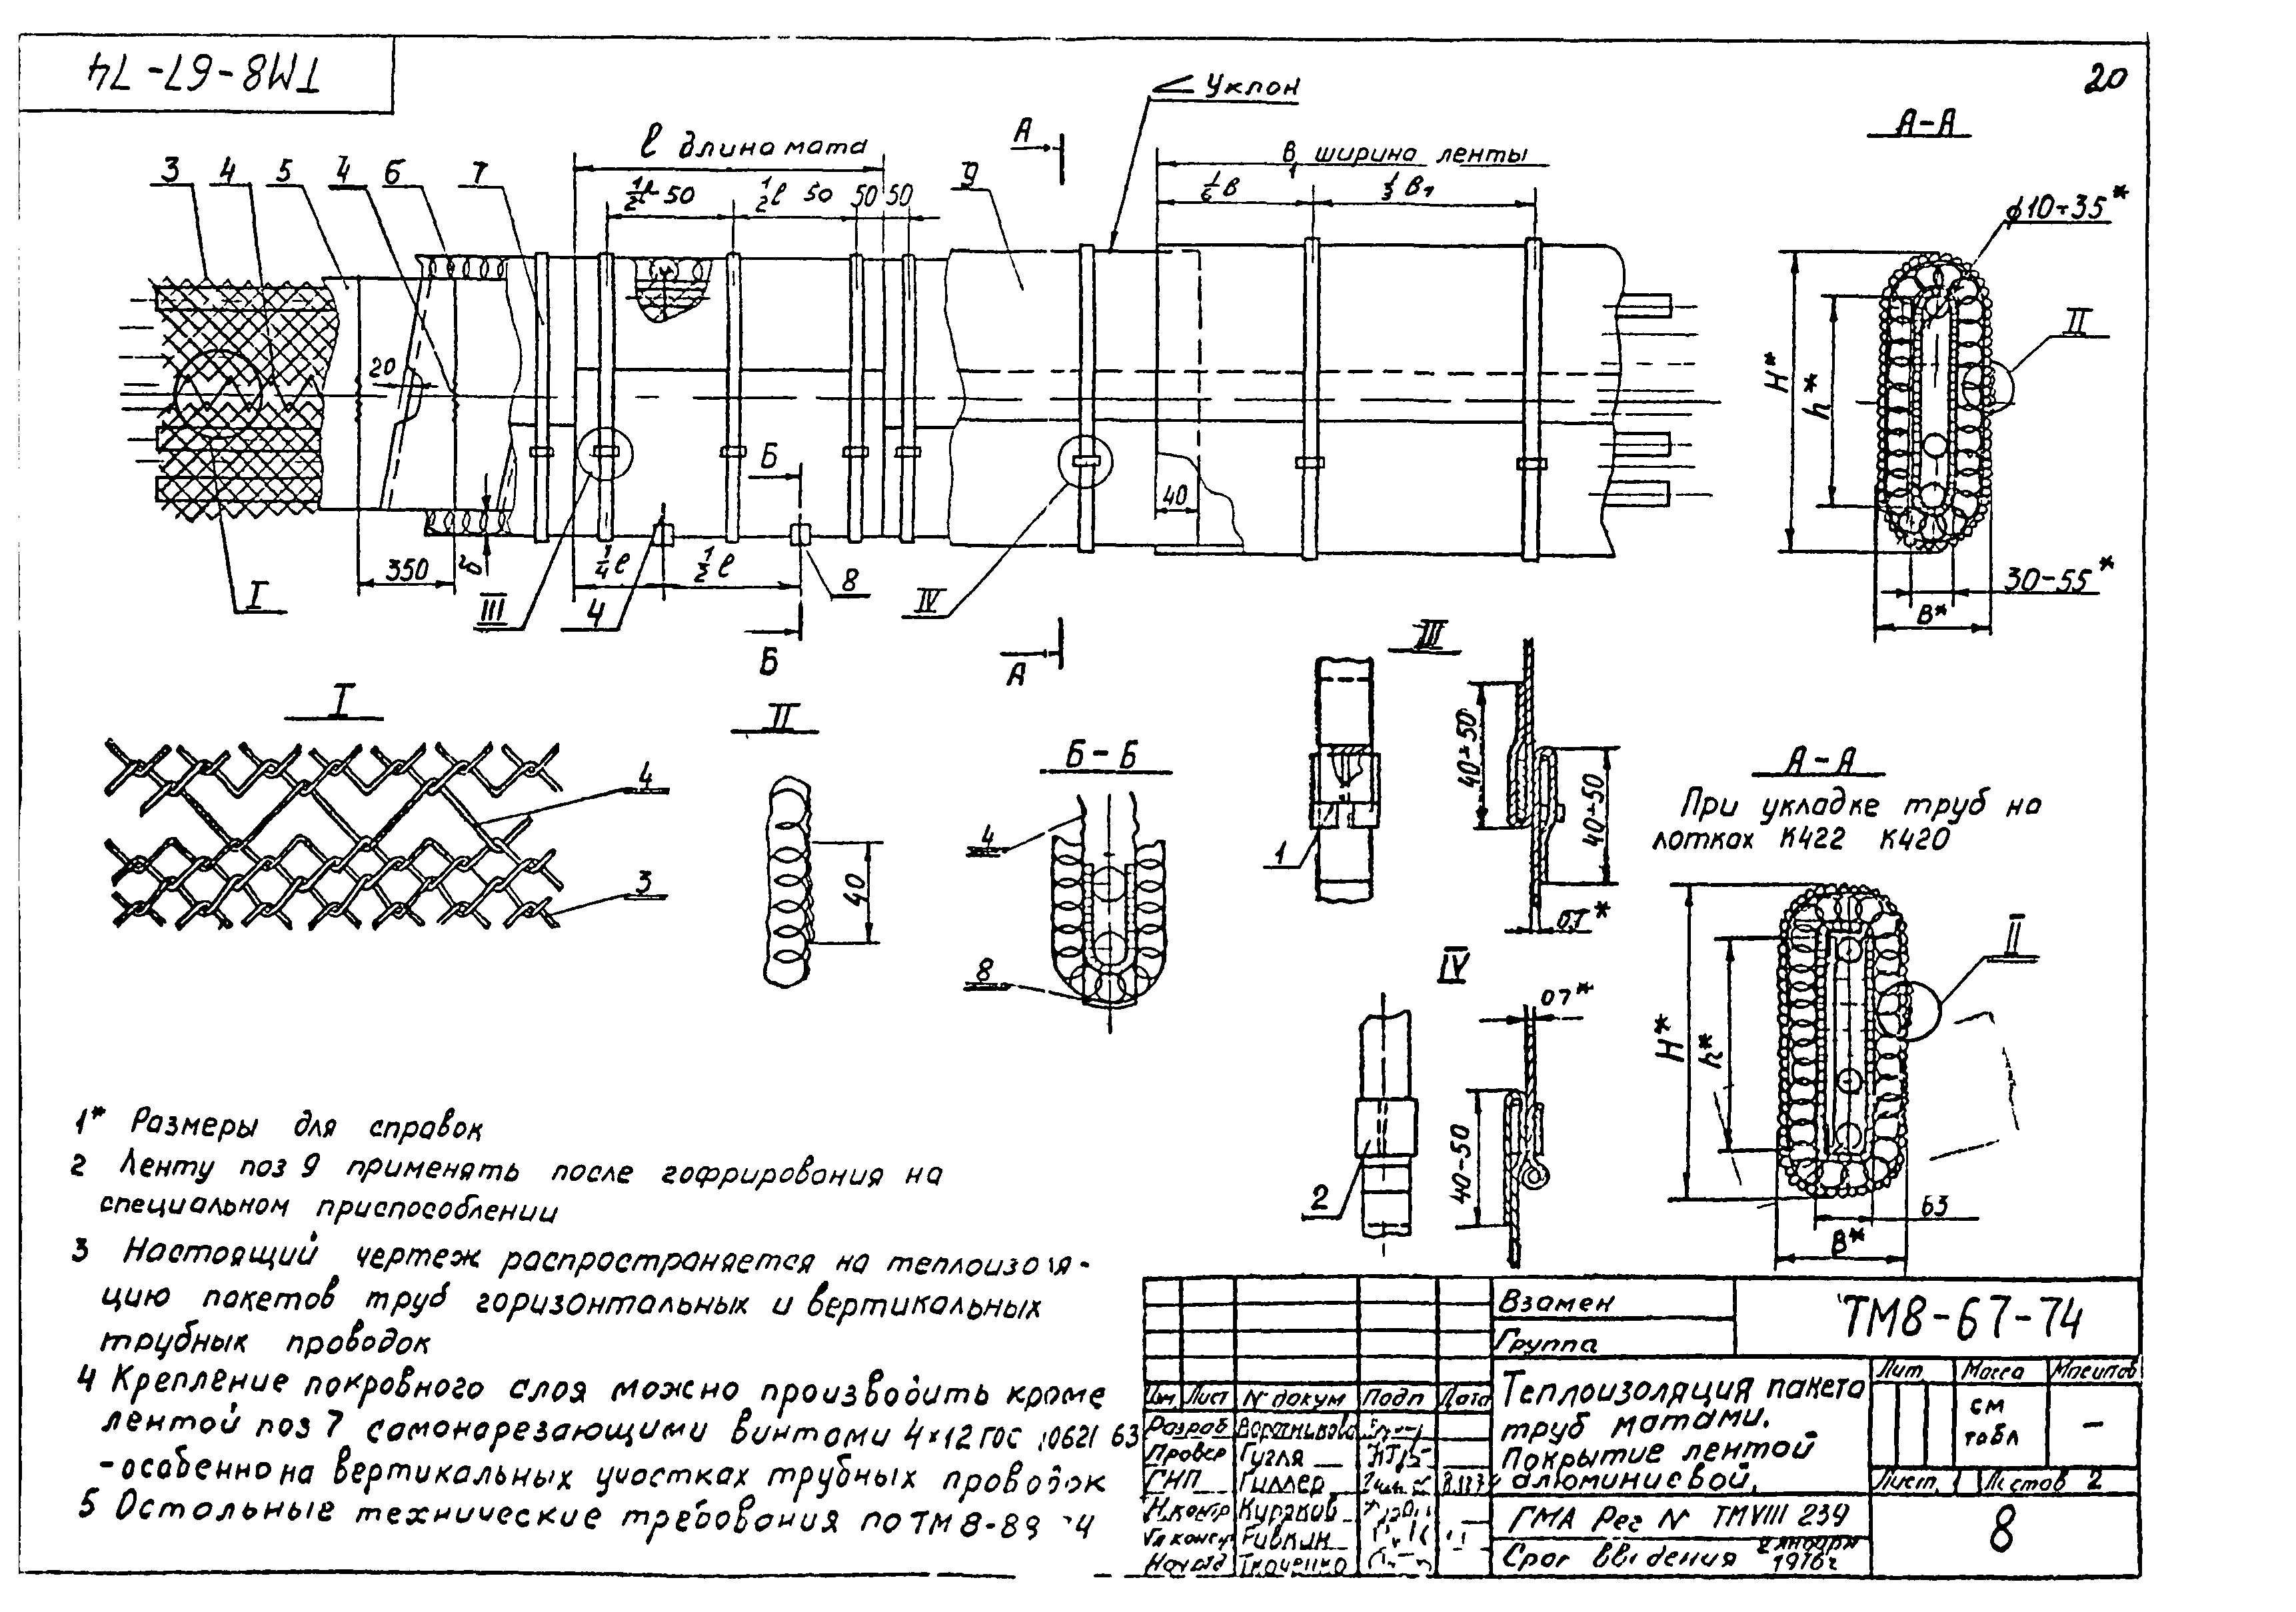 ТМ8-67-74
20
Уклон
А
А-А
ℓ длина мата
В₁ ширина ленты
3 4 5 4 6 7
½ℓ 50
½ℓ 50
50 50
9
⅙ В
⅓ В₁
ϕ10÷35*
II
H*
h*
20
Б
40
350
20
¼ℓ
½ℓ
8
I
III
4
IV
30-55*
В*
Б
А
I
II
Б-Б
III
4
3
40
4
8
40÷50
40÷50
1
0,7*
А-А
При укладке труб на
лотках К422 К420
II
H*
h*
63
В*
IV
0,7*
40-50
2
1* Размеры для справок
2 Ленту поз 9 применять после гофрирования на
специальном приспособлении
3 Настоящий чертеж распространяется на теплоизоля-
цию пакетов труб горизонтальных и вертикальных
трубных проводок
4 Крепление покровного слоя можно производить кроме
лентой поз 7 самонарезающими винтами 4×12 ГОС 10621 63
-особенно на вертикальных участках трубных проводок
5 Остальные технические требования по ТМ 8-89 74
Взамен
Группа
ТМ8-67-74
Изм Лист N докум Подп Дата
Разраб
Провер Гугля
ГИП Гиллер
Н.контр Куряков
Гл конст Ривкин
Нач отд Ткаченко
Теплоизоляция пакета
труб матами.
Покрытие лентой
алюминиевой.
Лит Масса Масштаб
см
табл
-
Лист 1 Листов 2
ГМА Рег N ТМVIII 239
Срок введения 1 января
1976г
8